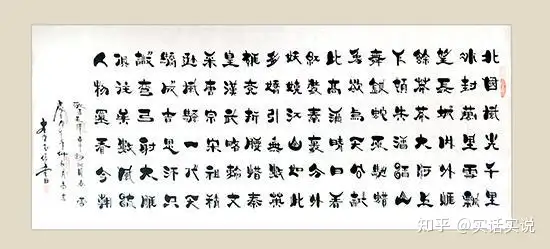 北國風光千里
冰封萬里雪飄
望長城內外惟
餘莽莽大河上
下頓失滔滔山
舞銀蛇原馳蠟
象欲與天公試
比高須晴日看
紅裝素裹分外
妖嬈江山如此
多嬌引無數英
雄競折腰惜秦
皇漢武略輸文
采唐宗宋祖稍
遜風騷一代天
驕成吉思汗只
識彎弓射大雕
俱往矣數風流
人物還看今朝
知乎 @实话实说